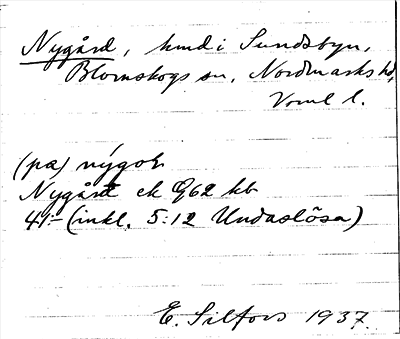 Nygård, hmd i Sundsbyn,
Blomskogs sn, Nordmarks hd,
Vrml l.
(pa) nýgoł
Nygård ek Q62 kb
41:- (inkl. 5:12 Undaslösa)
E. Silfors 1937.